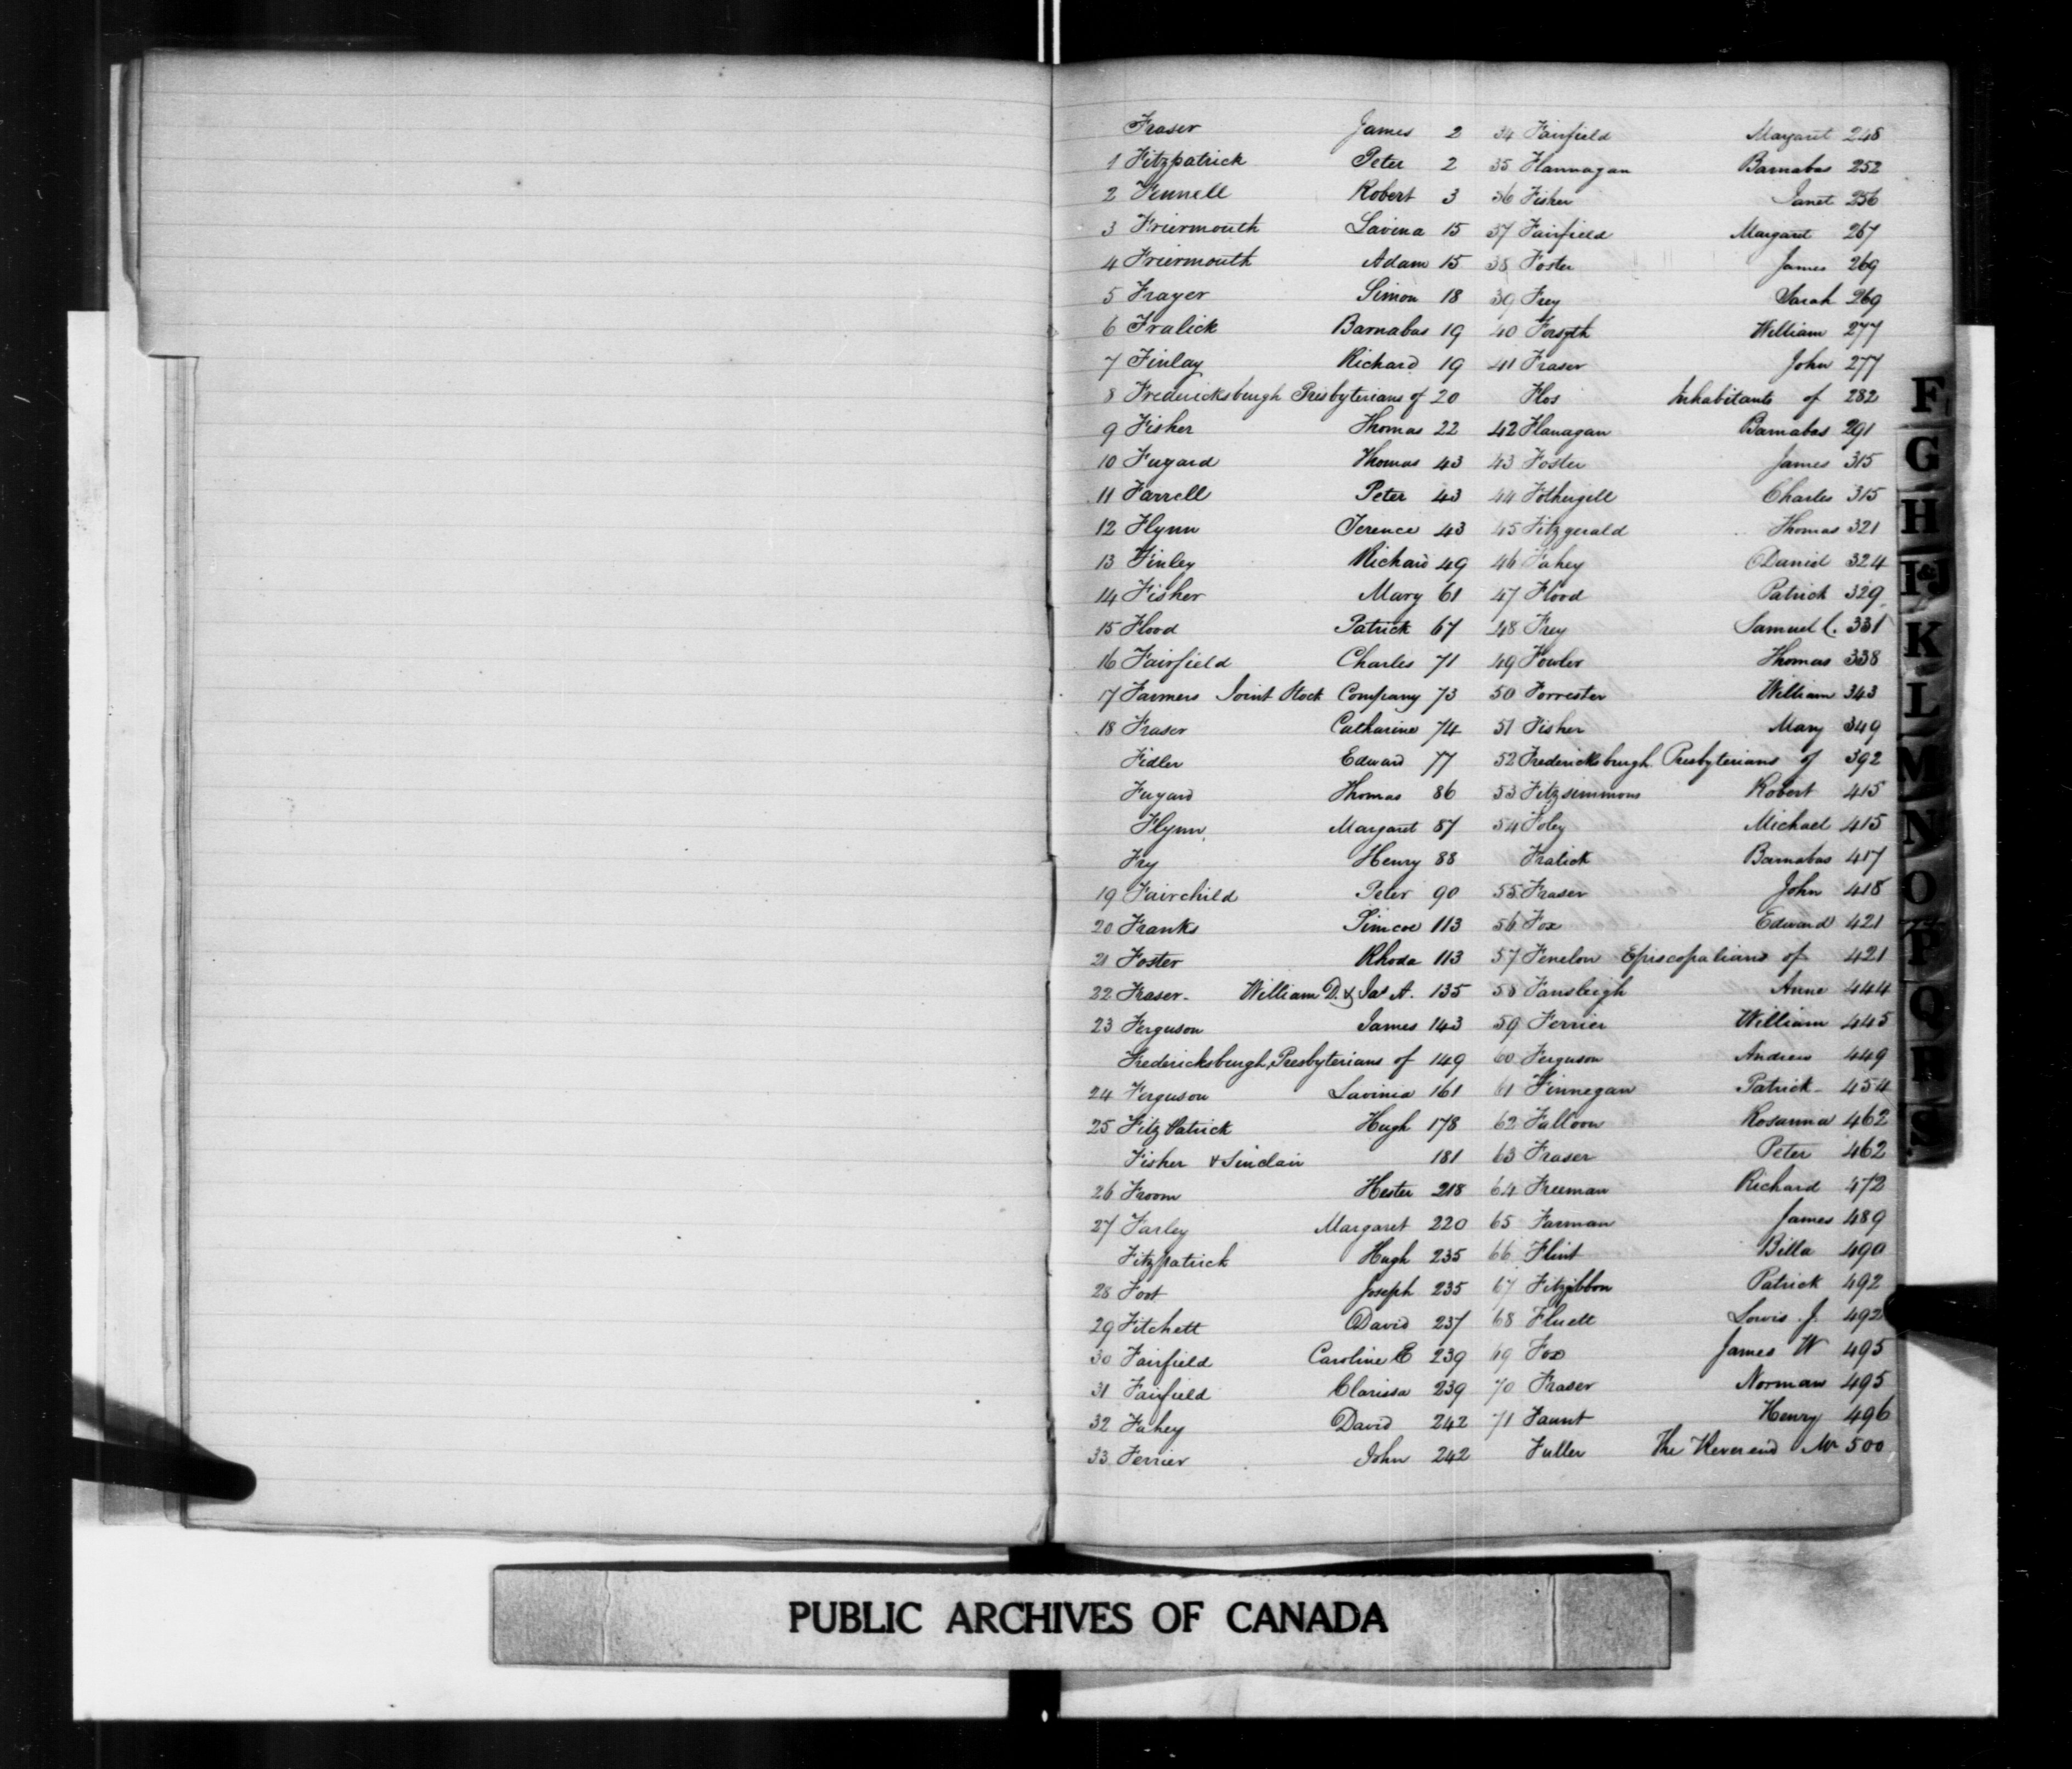 Fraser James 2
1 Fitzpatrick Peter 2
2 Fennell Robert 3
3 Friermouth Lavina 15
4 Friermouth Adam 15
5 Frayer Simon 18
6 Fralick Barnabas 19
7 Finlay Richard 19
8 Fredericksburgh Presbyterians of 20
9 Fisher Thomas 22
10 Fugard Thomas 43
11 Farrell Peter 43
12 Flynn Terence 43
13 Finley Richard 49
14 Fisher Mary 61
15 Flood Patrick 67
16 Fairfield Charles 71
17 Farmers Joint Stock Company 73
18 Fraser Catharine 74
Fidler Edward 77
Fugard Thomas 86
Flynn Margaret 87
Fry Henry 88
19 Fairchild Peter 90
20 Franks Simcoe 113
21 Foster Rhoda 113
22 Fraser William D. & Jas A. 135
23 Ferguson James 143
Fredericksburgh, Presbyterians of 149
24 Ferguson Lavinia 161
25 Fitz Patrick Hugh 178
Fisher & Sinclair 181
26 Froom Hester 218
27 Farley Margaret 220
Fitzpatrick Hugh 235
28 Foot Joseph 235
29 Fitchett David 237
30 Fairfield Caroline E 239
31 Fairfield Clarissa 239
32 Fahey David 242
33 Ferrier John 242
34 Fairfield Margaret 248
35 Flannagan Barnabas 252
36 Fisher Janet 256
37 Fairfield Margaret 267
38 Foster James 269
39 Frey Sarah 269
40 Forsyth William 277
41 Fraser John 277
Flos Inhabitants of 282
42 Flanagan Barnabas 291
43 Foster James 315
44 Fothergill Charles 315
45 Fitzgerald Thomas 321
46 Fahey Daniel 324
47 Flood Patrick 329
48 Frey Samuel C. 331
49 Fowler Thomas 338
50 Forrester William 343
51 Fisher Mary 349
52 Fredericksburgh Presbyterians of 392
53 Fitzsimmons Robert 415
54 Foley Michael 415
Fralick Barnabas 417
55 Fraser John 418
56 Fox Edward 421
57 Fenelon Episcopalians of 421
58 Fansleigh Anne 444
59 Ferrier William 445
60 Ferguson Andrew 449
61 Finnegan Patrick 454
62 Falloon Rosanna 462
63 Fraser Peter 462
64 Freeman Richard 472
65 Farman James 489
66 Flint Billa 490
67 Fitzgibbon Patrick 492
68 Fluett Lowis J. 492
69 Fox James W 495
70 Fraser Norman 495
71 Faunt Henry 496
Fuller The Reverend Mr 500
F
G
H
I&J
K
L
M
N
O
P
Q
R
S
PUBLIC ARCHIVES OF CANADA